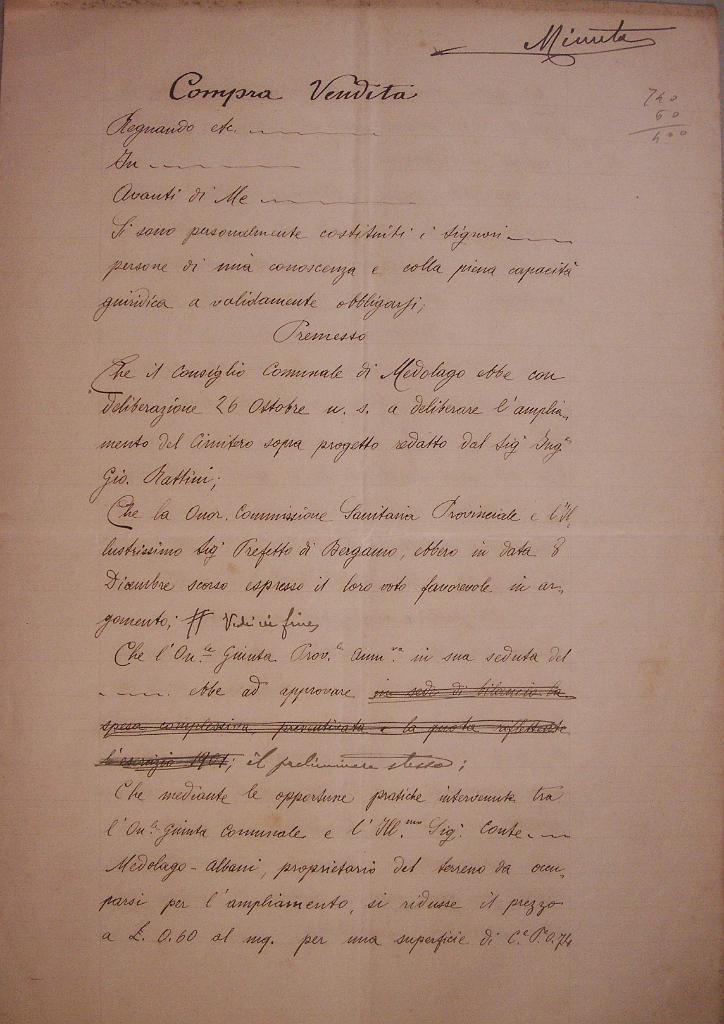 Minuta
Compra Vendita
740
60
400
Regnando etc.
In
Avanti di Me
Si sono personalmente costituiti i Signori
persone di mia conoscenza e colla piena capacità
giuridica a validamente obbligarsi;
Premesso
Che il Consiglio Comunale di Medolago ebbe con
deliberazione 26 Ottobre u. s. a deliberare l'amplia-
mento del Cimitero sopra progetto redatto dal Sigr Ingre
Gio. Rattini;
Che la Onor. Commissione Sanitaria Provinciale e l'Il-
lustrissimo Sigr Prefetto di Bergamo, ebbero in data 8
Dicembre scorso espresso il loro voto favorevole in ar-
gomento; # Vedi in fine
Che l'On.le Giunta Prov.le Amm.va in sua seduta del
ebbe ad approvare in sede di bilancio la
spesa complessiva preventivata e la quota riflettente
l'esercizio 1901; il preliminare stesso;
Che mediante le opportune pratiche intervenute tra
l'On.le Giunta Comunale e l'Ill.mo Sigr. Conte
Medolago-Albani, proprietario del terreno da occu-
parsi per l'ampliamento, si ridusse il prezzo
a £. 0.60 al mq. per una superficie di C.e P.e 0.74